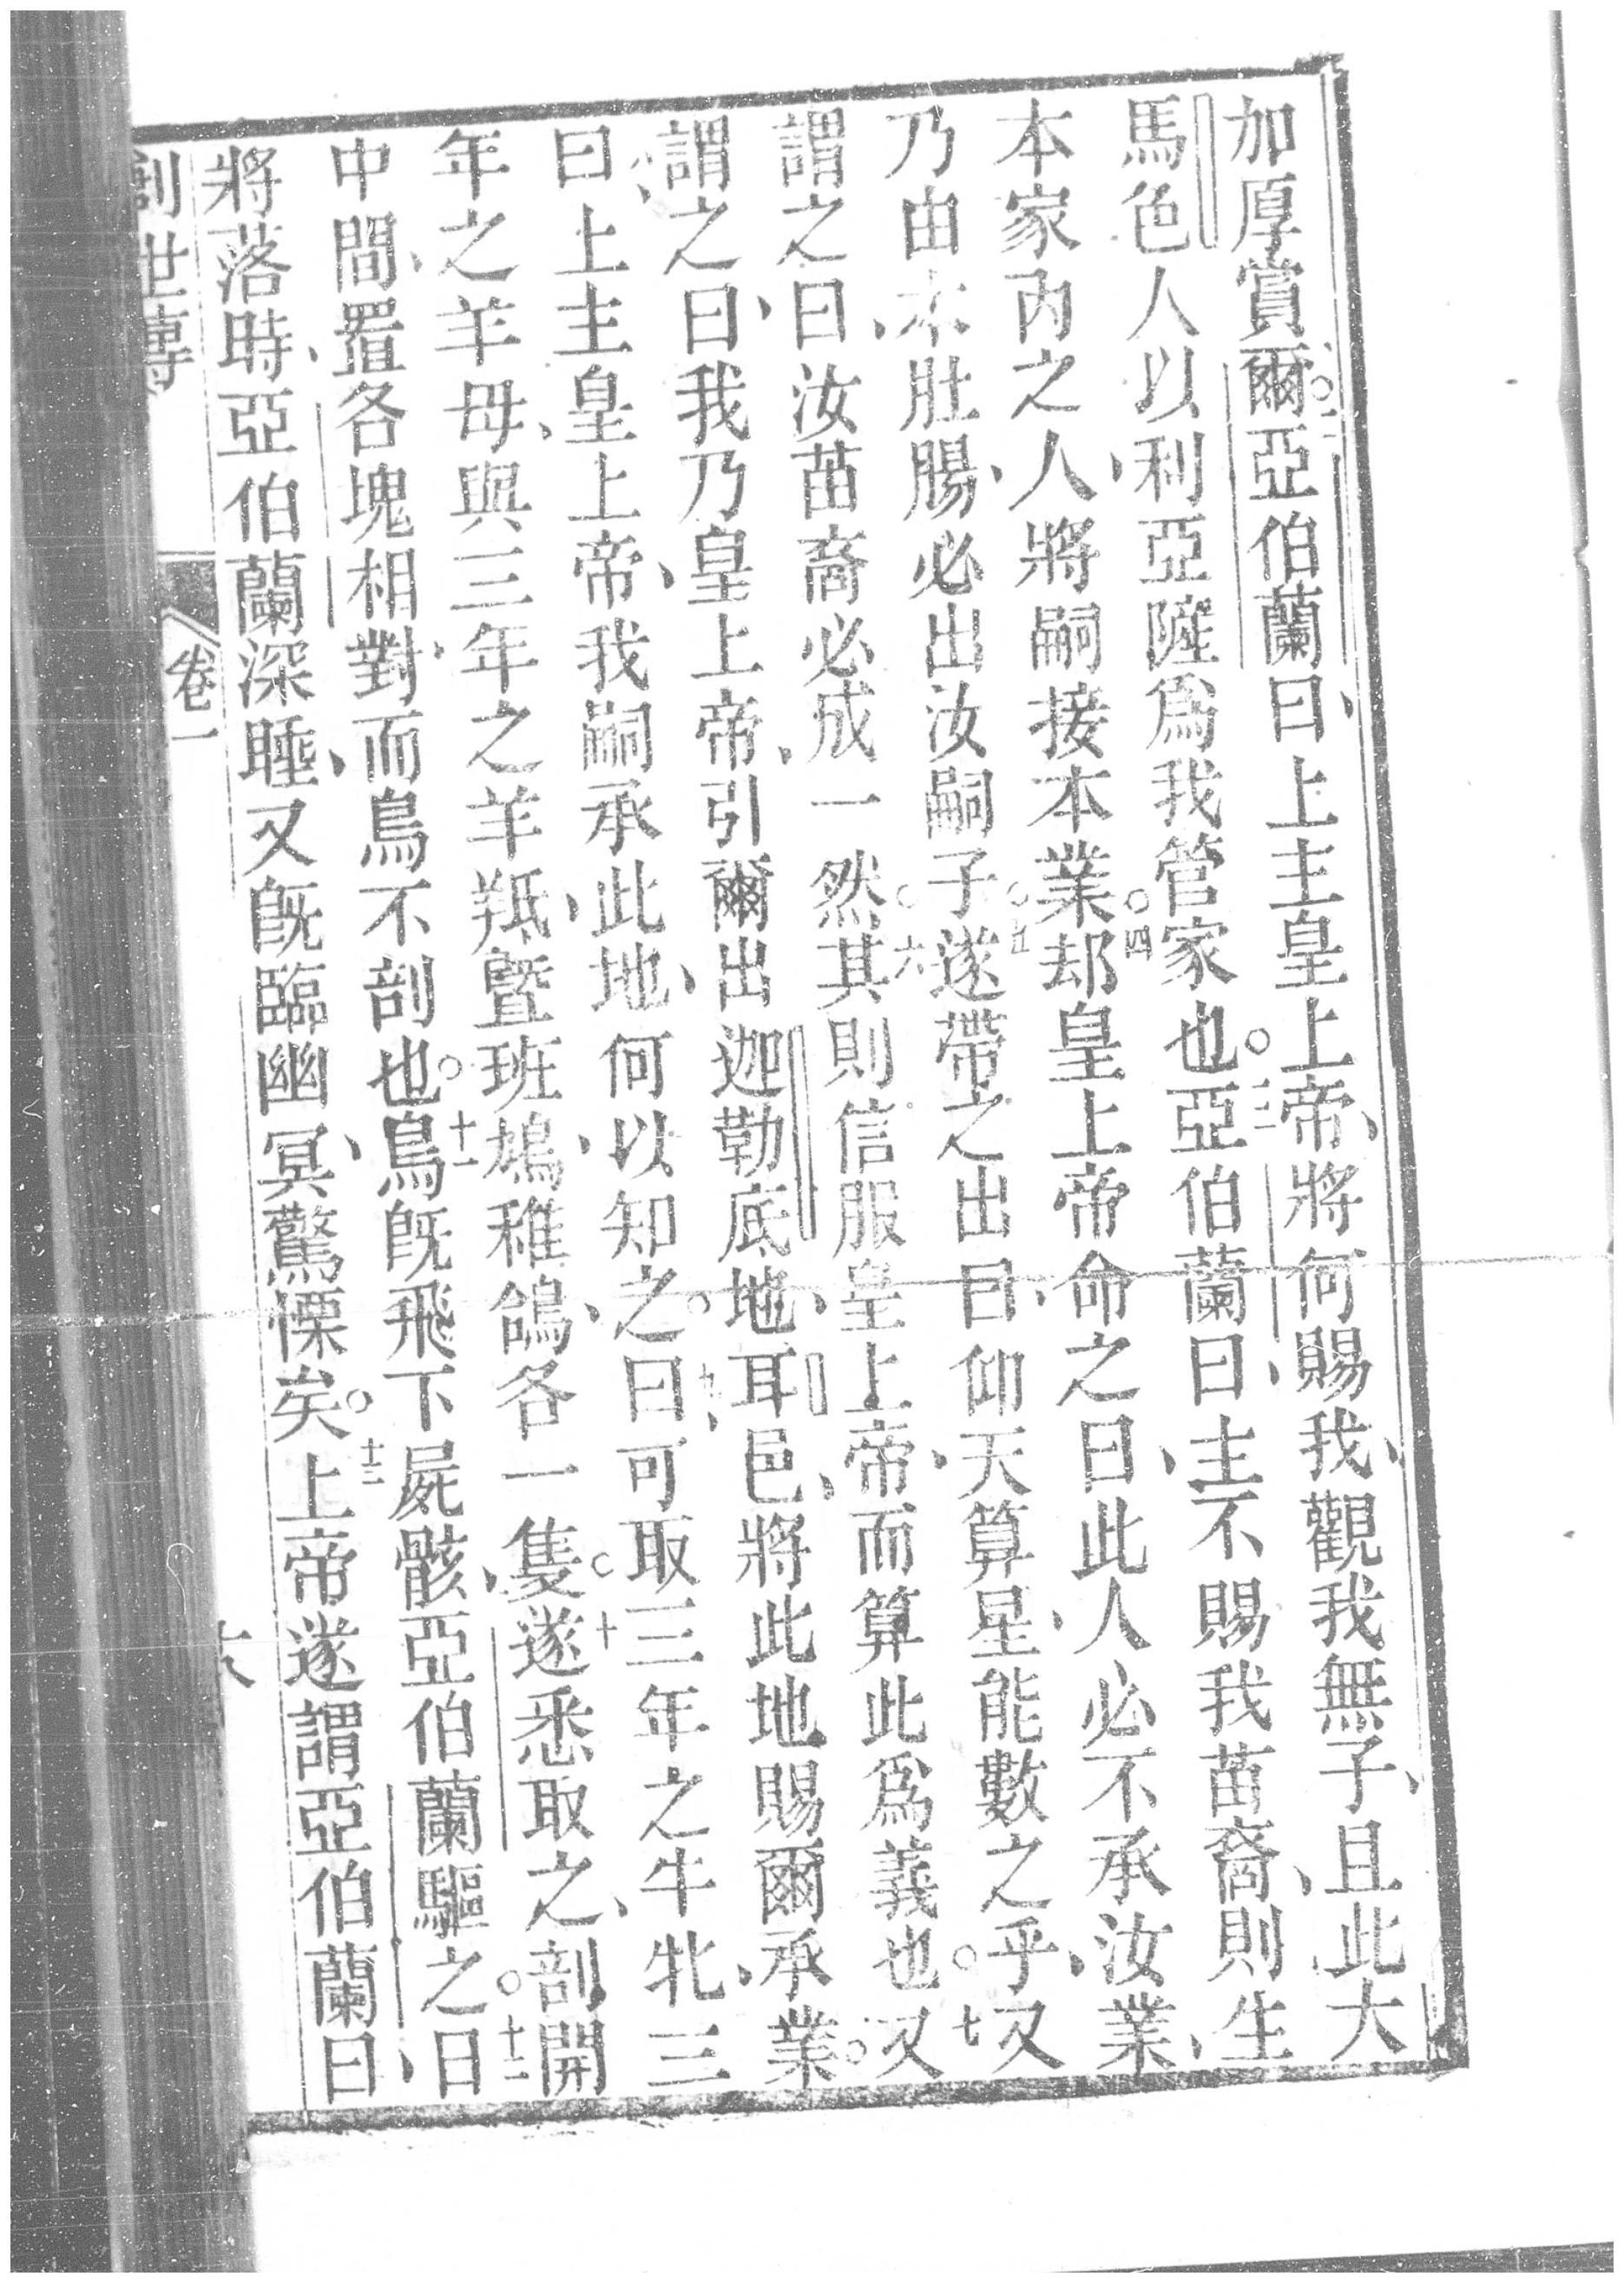 加厚賞爾。二亞伯蘭曰、上主皇上帝、將何賜我、觀我無子、且此大
馬色人以利亞薩為我管家也。三亞伯蘭曰、主不賜我苗裔、則生
本家內之人、將嗣接本業。四却皇上帝命之曰、此人必不承汝業、
乃由本肚腸、必出汝嗣子。五遂帶之出曰、仰天算星、能數之乎、又
謂之曰、汝苗裔必成一然。六其則信服皇上帝、而算此為義也。七又
謂之曰、我乃皇上帝、引爾出迦勒底地、耳邑、將此地賜爾承業。
八、曰上主皇上帝、我嗣承此地、何以知之。九、曰可取三年之牛牝、三
年之羊母、與三年之羊羝、暨班鳩、稚鴿、各一隻。十遂悉取之、剖開
中間、置各塊相對、而鳥不剖也。十一鳥既飛下屍骸、亞伯蘭驅之。十二日
將落時、亞伯蘭深睡、又既臨幽冥、驚慄矣。十三上帝遂謂亞伯蘭曰、
創世傳 卷一